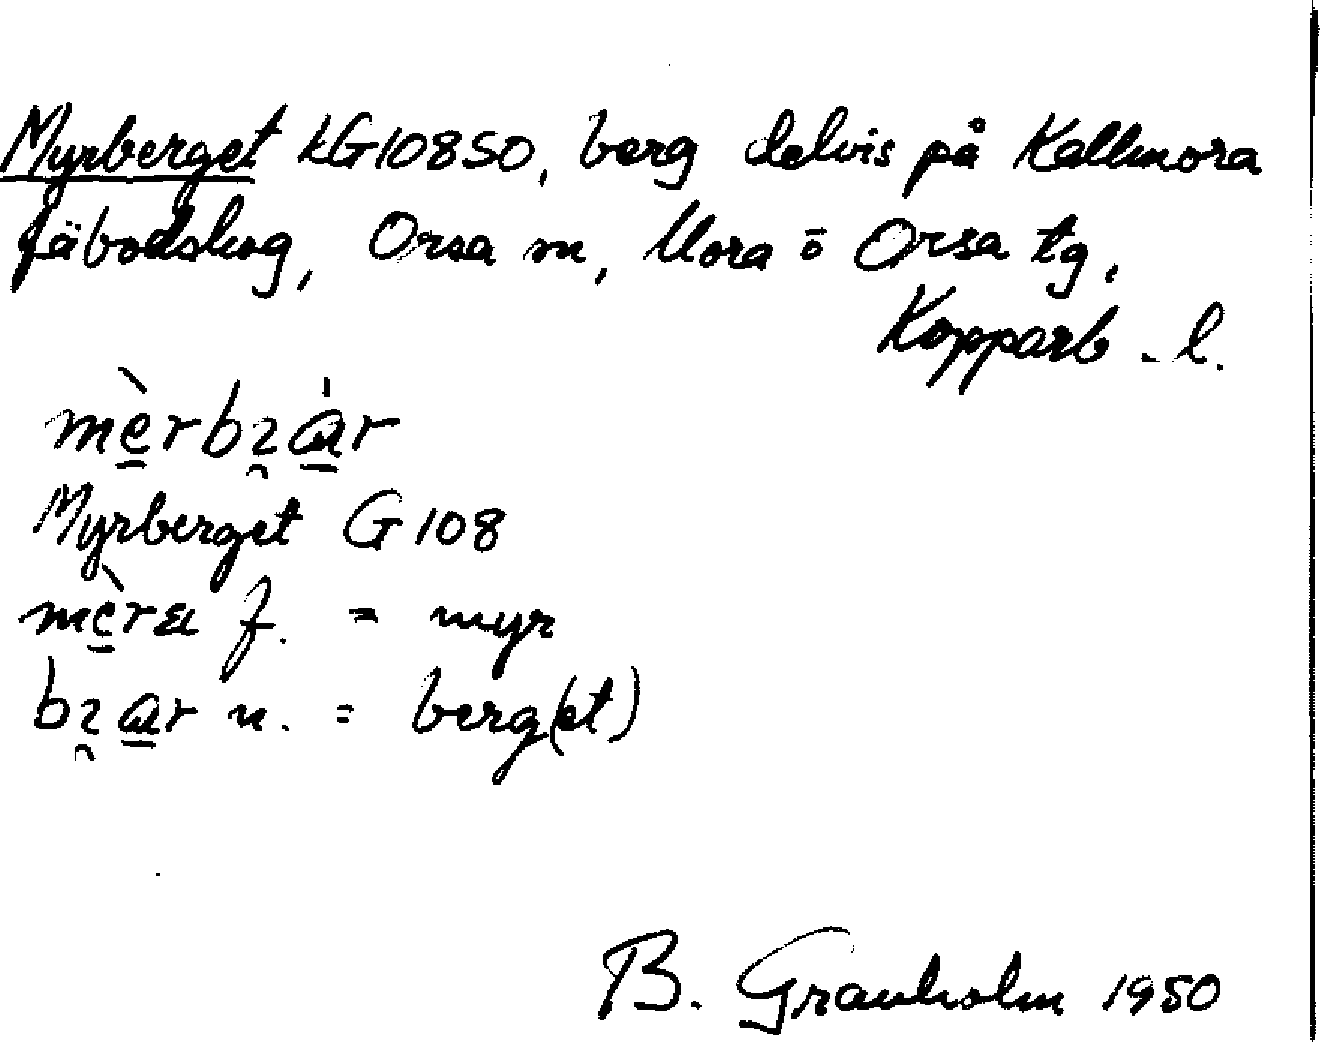 Myrberget kG108SO, berg delvis på Kallmora
fäbodskog, Orsa sn, Mora o Orsa tg,
Kopparb. l.
Myrberget G 108
f. = myr
n. = berg(et)
B. Granholm 1950